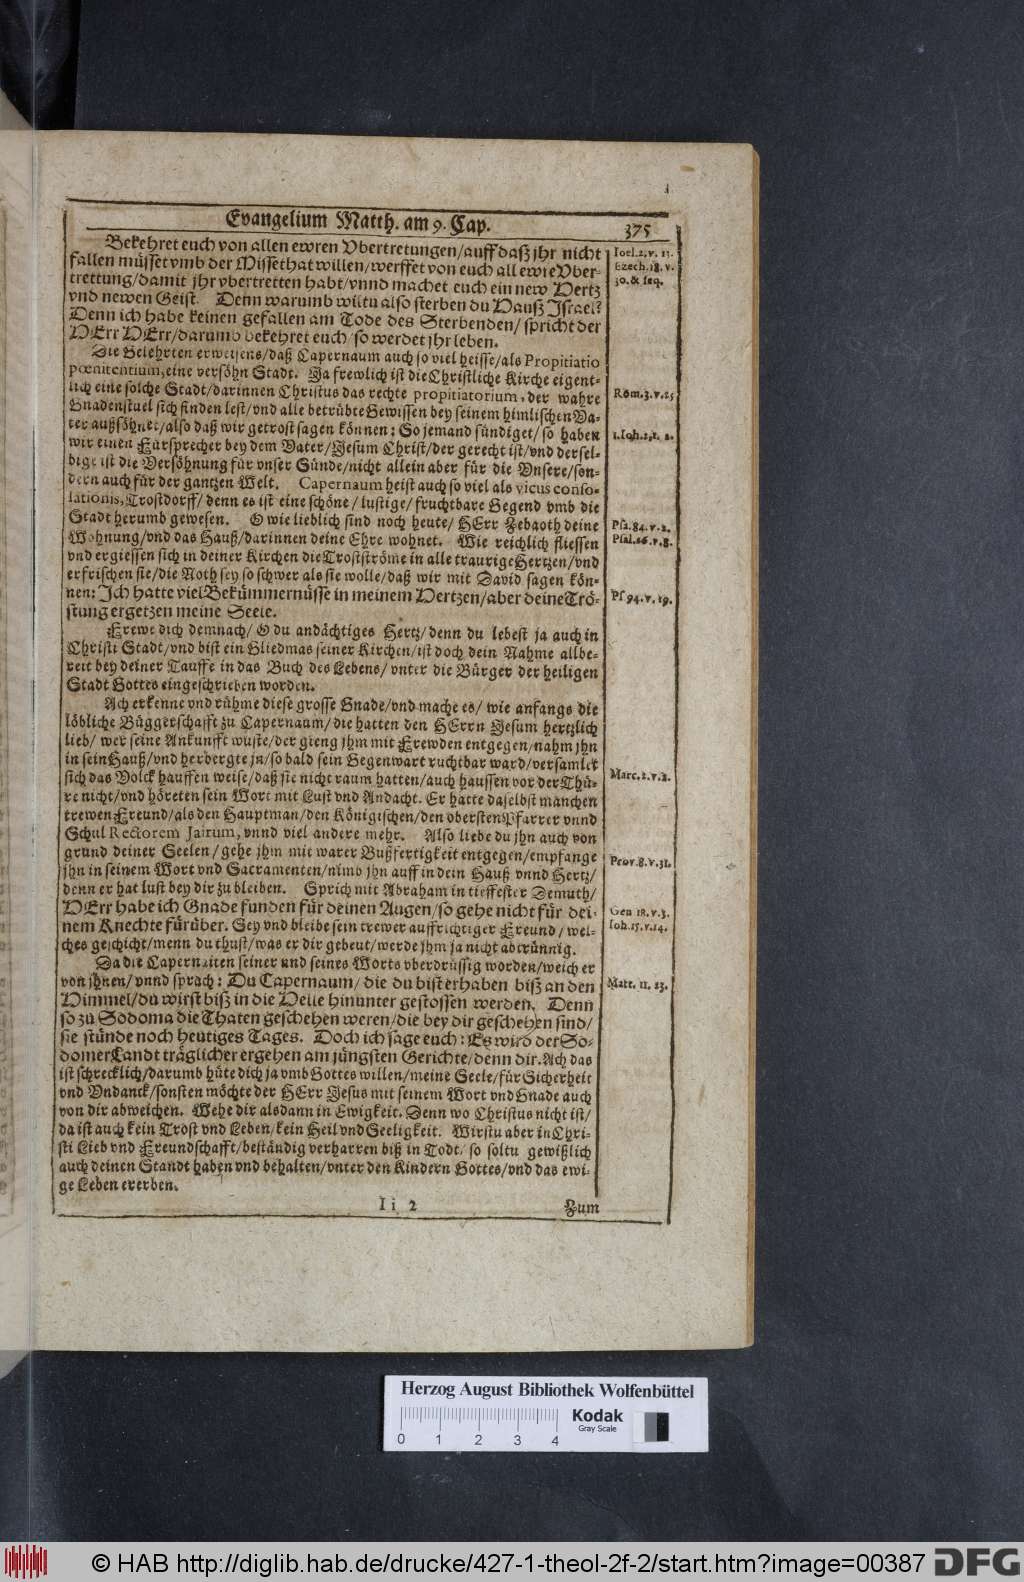 Evangelium Matth. am 9. Cap.
375
Bekehret euch von allen ewren Vbertretungen/auff daß jhr nicht
fallen müsset vmb der Missethat willen/werffet von euch all ewre Vber-
trettung/damit jhr vbertretten habt/vnnd machet euch ein new Hertz
vnd newen Geist. Denn warumb wiltu also sterben du Hauß Israel?
Denn ich habe keinen gefallen am Tode des Sterbenden/ spricht der
HErr HErr/darumb bekehret euch/so werdet jhr leben.
Die Gelehrten erweisens/daß Capernaum auch so viel heisse/als Propitiatio
pœnitentium, eine versöhn Stadt. Ja frewlich ist die Christliche Kirche eigent-
lich eine solche Stadt/darinnen Christus das rechte propitiatorium, der wahre
Gnadenstuel sich finden lest/vnd alle betrübte Gewissen bey seinem himlischen Va-
ter außsöhnet/also daß wir getrost sagen können: So jemand sündiget/so haben
wir einen Fürsprecher bey dem Vater/Jesum Christ/der gerecht ist/vnd dersel-
bige ist die Versöhnung für vnser Sünde/nicht allein aber für die Vnsere/son-
dern auch für der gantzen Welt. Capernaum heist auch so viel als vicus conso-
lationis, Trostdorff/ denn es ist eine schöne/ lustige/ fruchtbare Gegend vmb die
Stadt herumb gewesen. O wie lieblich sind noch heute/ HErr Zebaoth deine
Wohnung/vnd das Hauß/darinnen deine Ehre wohnet. Wie reichlich fliessen
vnd ergiessen sich in deiner Kirchen die Trostströme in alle traurige Hertzen/vnd
erfrischen sie/die Noth sey so schwer als sie wolle/daß wir mit David sagen kön-
nen: Ich hatte viel Bekümmernüsse in meinem Hertzen/aber deine Trö-
stung ergetzen meine Seele.
Frewe dich demnach/ O du andächtiges Hertz/denn du lebest ja auch in
Christi Stadt/vnd bist ein Gliedmas seiner Kirchen/ist doch dein Nahme allbe-
reit bey deiner Tauffe in das Buch des Lebens/ vnter die Bürger der heiligen
Stadt Gottes eingeschrieben worden.
Ach erkenne vnd rühme diese grosse Gnade/vnd mache es/ wie anfangs die
löbliche Büggerschafft zu Capernaum/die hatten den HErrn Jesum hertzlich
lieb/ wer seine Ankunfft wuste/der gieng jhm mit Frewden entgegen/nahm jhn
in sein Hauß/vnd herbergte jn/so bald sein Gegenwart ruchtbar ward/versamlet
sich das Volck hauffen weise/daß sie nicht raum hatten/auch haussen vor der Thü-
re nicht/vnd höreten sein Wort mit Lust vnd Andacht. Er hatte daselbst manchen
trewen Freund/als den Hauptman/den Königischen/den obersten Pfarrer vnnd
Schul Rectorem Jairum, vnnd viel andere mehr. Also liebe du jhn auch von
grund deiner Seelen/gehe jhm mit warer Bußfertigkeit entgegen/empfange
jhn in seinem Wort vnd Sacramenten/nimb jhn auff in dein Hauß vnnd Hertz/
denn er hat lust bey dir zu bleiben. Sprich mit Abraham in tieffester Demuth/
HErr habe ich Gnade funden für deinen Augen/so gehe nicht für dei-
nem Knechte fürüber. Sey vnd bleibe sein trewer auffrichtiger Freund/ wel-
ches geschicht/wenn du thust/was er dir gebeut/werde jhm ja nicht abtrünnig.
Da die Capernaiten seiner und seines Worts vberdrüssig worden/weich er
von jhnen/ vnnd sprach: Du Capernaum/ die du bist erhaben biß an den
Himmel/du wirst biß in die Helle hinunter gestossen werden. Denn
so zu Sodoma die Thaten geschehen weren/die bey dir geschehen sind/
sie stünde noch heutiges Tages. Doch ich sage euch: Es wird der So-
domer Landt träglicher ergehen am jüngsten Gerichte/denn dir. Ach das
ist schrecklich/darumb hüte dich ja vmb Gottes willen/meine Seele/für Sicherheit
vnd Vndanck/sonsten möchte der HErr Jesus mit seinem Wort vnd Gnade auch
von dir abweichen. Wehe dir alsdann in Ewigkeit. Denn wo Christus nicht ist/
da ist auch kein Trost vnd Leben/kein Heil vnd Seeligkeit. Wirstu aber in Chri-
sti Lieb vnd Freundschafft/beständig verharren biß in Todt/ so soltu gewißlich
auch deinen Standt haben vnd behalten/vnter den Kindern Gottes/vnd das ewi-
ge Leben ererben.
Ioel.2.v.13.
Ezech.18.v.
30.& seq.
Rom.3.v.25
1.Ioh.2.v.2.
Psa.84.v.2.
Psal.26.v.8.
Ps 94.v.19.
Marc.2.v.2.
Prov.8.v.31.
Gen 18.v.3.
Ioh.15.v.14.
Matt. 11. 23.
Ii 2
Zum
Herzog August Bibliothek Wolfenbüttel
Kodak
Gray Scale
0 1 2 3 4
© HAB http://diglib.hab.de/drucke/427-1-theol-2f-2/start.htm?image=00387
DFG